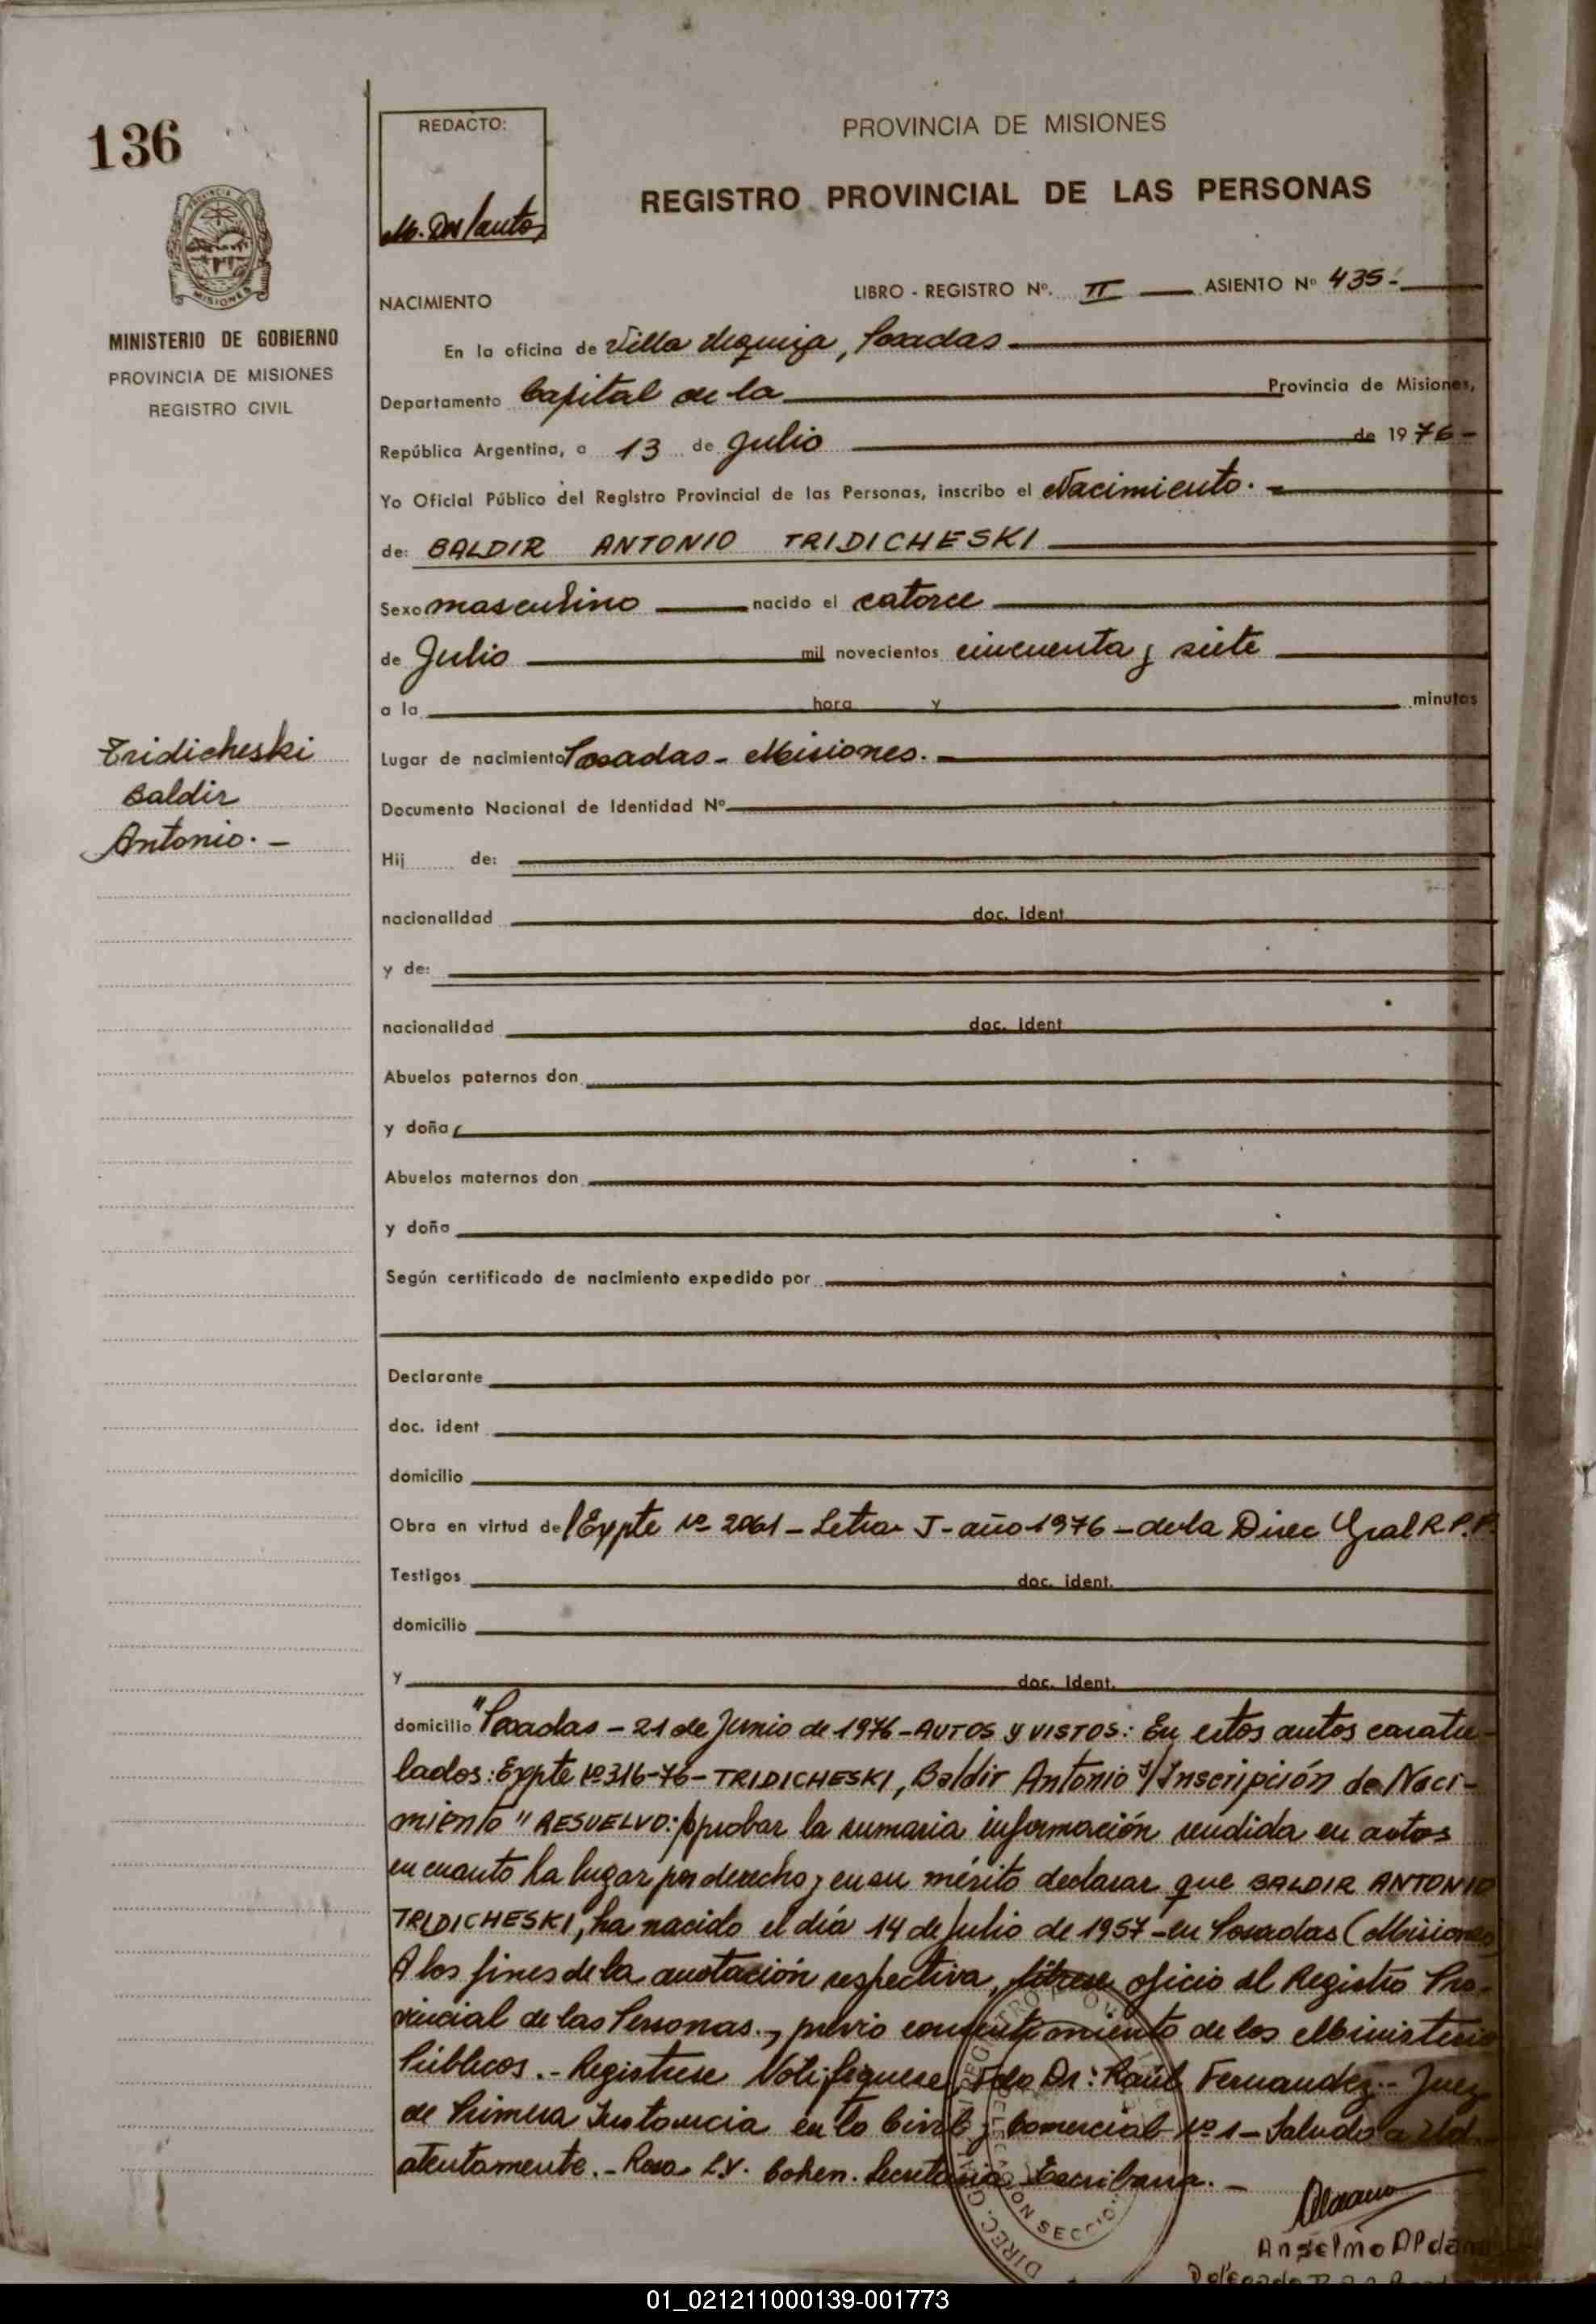 136
REDACTO:
PROVINCIA DE MISIONES
REGISTRO PROVINCIAL DE LAS PERSONAS
PROVINCIA DE
MISIONES
MINISTERIO DE GOBIERNO
PROVINCIA DE MISIONES
REGISTRO CIVIL
NACIMIENTO
LIBRO - REGISTRO Nº. II ASIENTO Nº 435.-
En la oficina de Villa Urquiza, Posadas
Departamento Capital de la Provincia de Misiones,
República Argentina, a 13 de Julio de 1976-
Yo Oficial Público del Registro Provincial de las Personas, inscribo el Nacimiento.-
de: BALDIR ANTONIO TRIDICHESKI
Sexo masculino nacido el catorce
de Julio mil novecientos cincuenta y siete
a la hora y minutos
Tridicheski
Baldir
Antonio.-
Lugar de nacimiento Posadas - Misiones.-
Documento Nacional de Identidad Nº
Hij de:
nacionalidad doc. ident
y de:
nacionalidad doc. ident
Abuelos paternos don
y doña
Abuelos maternos don
y doña
Según certificado de nacimiento expedido por
Declarante
doc. ident
domicilio
Obra en virtud del Expte Nº 2061 - Letra J - año 1976 - de la Direc Gral R.P.P.
Testigos doc. ident.
domicilio
y doc. ident.
domicilio "Posadas - 21 de Junio de 1976 - AUTOS Y VISTOS: En estos autos caratu-
lados: Expte Nº 316-76 - TRIDICHESKI, Baldir Antonio s/ Inscripción de Naci-
miento" RESUELVO: Aprobar la sumaria información rendida en autos
en cuanto ha lugar por derecho y en su mérito declarar que BALDIR ANTONIO
TRIDICHESKI, ha nacido el día 14 de Julio de 1957 - en Posadas (Misiones
A los fines de la anotación respectiva, líbrese oficio al Registro Pro-
vincial de las Personas., previo consentimiento de los Ministerio
Públicos.- Registrese Notifiquese, Fdo Dr: Raúl Fernandez.- Juez
de Primera Instancia en lo Civil y Comercial Nº 1 - Saludo a Ud
atentamente.- Rosa L.V. Cohen. Secretaria Escribana.-
Anselmo Aldana
01_021211000139-001773